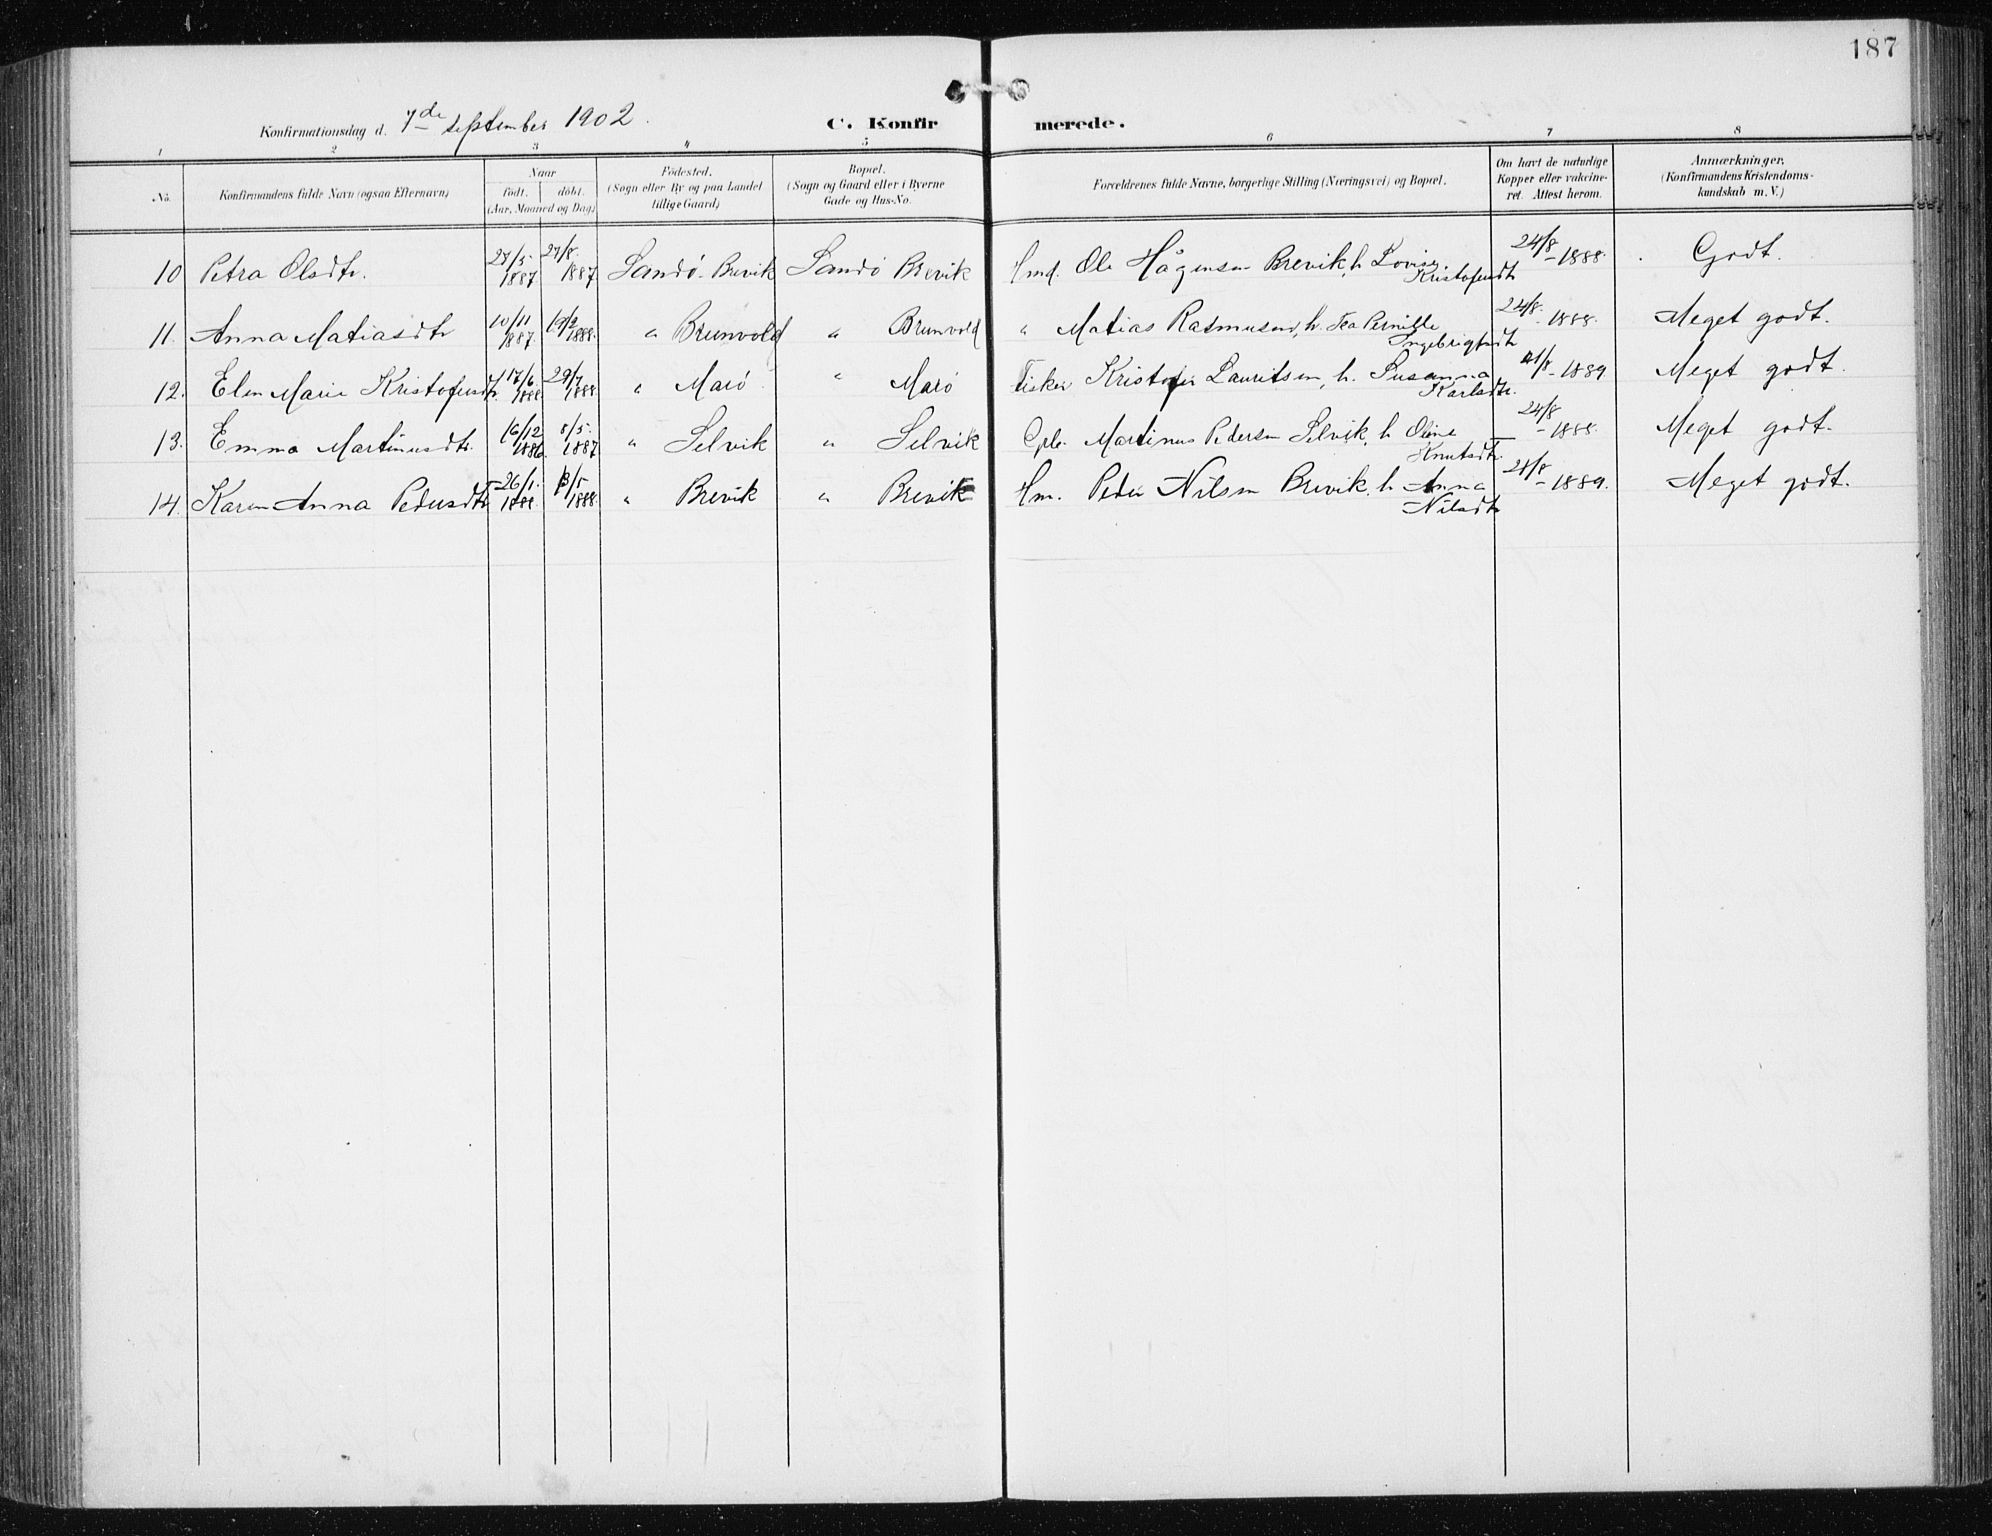 187
Konfirmationsdag d. 7de september 1902.
C. Konfirmerede.
1 2 3 4 5 6 7 8
No. Konfirmandens fulde Navn (ogsaa Efternavn) Naar født. døbt. (Aar, Maaned og Dag) Fødested. (Sogn eller By og paa Landet tillige Gaard) Bopæl. (Sogn og Gaard eller i Byerne Gade og Hus-No. Forældrenes fulde Navne, borgerlige Stilling (Næringsvei) og Bopæl. Om havt de naturlige Kopper eller vakcineret. Attest herom. Anmærkninger. (Konfirmandens Kristendomskundskab m. V.)
10 Petra Olsdtr. 27/5 1887 27/8 1887 Sandö Brevik Sandö Brevik Hmd. Ole Hågensen Brevik, h. Lovise Kristofersdtr 24/8 - 1888. Godt.
11. Anna Matiasdtr 10/11 1887. 19/2 1888. " Brunvold " Brunvold " Matias Rasmussen, h. Tea Pernille Ingebrigtsdtr 24/8 - 1888. Meget godt.
12. Elen Marie Kristofersdtr. 17/6 1888 29/7 1888. " Marö " Marö Fisker Kristofer Lauritsen, h. Susanna Karlsdtr. 21/8 - 1889 Meget godt.
13. Emma Martinusdtr. 16/12 1886. 8/5. 1887 " Selvik " Selvik Gbr. Martinus Pedersen Selvik, h. Oline Knutsdtr. 24/8 - 1888. Meget godt.
14. Karen Anna Pedersdtr 26/1. 1888. 13/5 1888. " Brevik " Brevik Hm. Peder Nilsen Brevik, h. Anna Nilsdtr 21/8 - 1889. Meget godt.